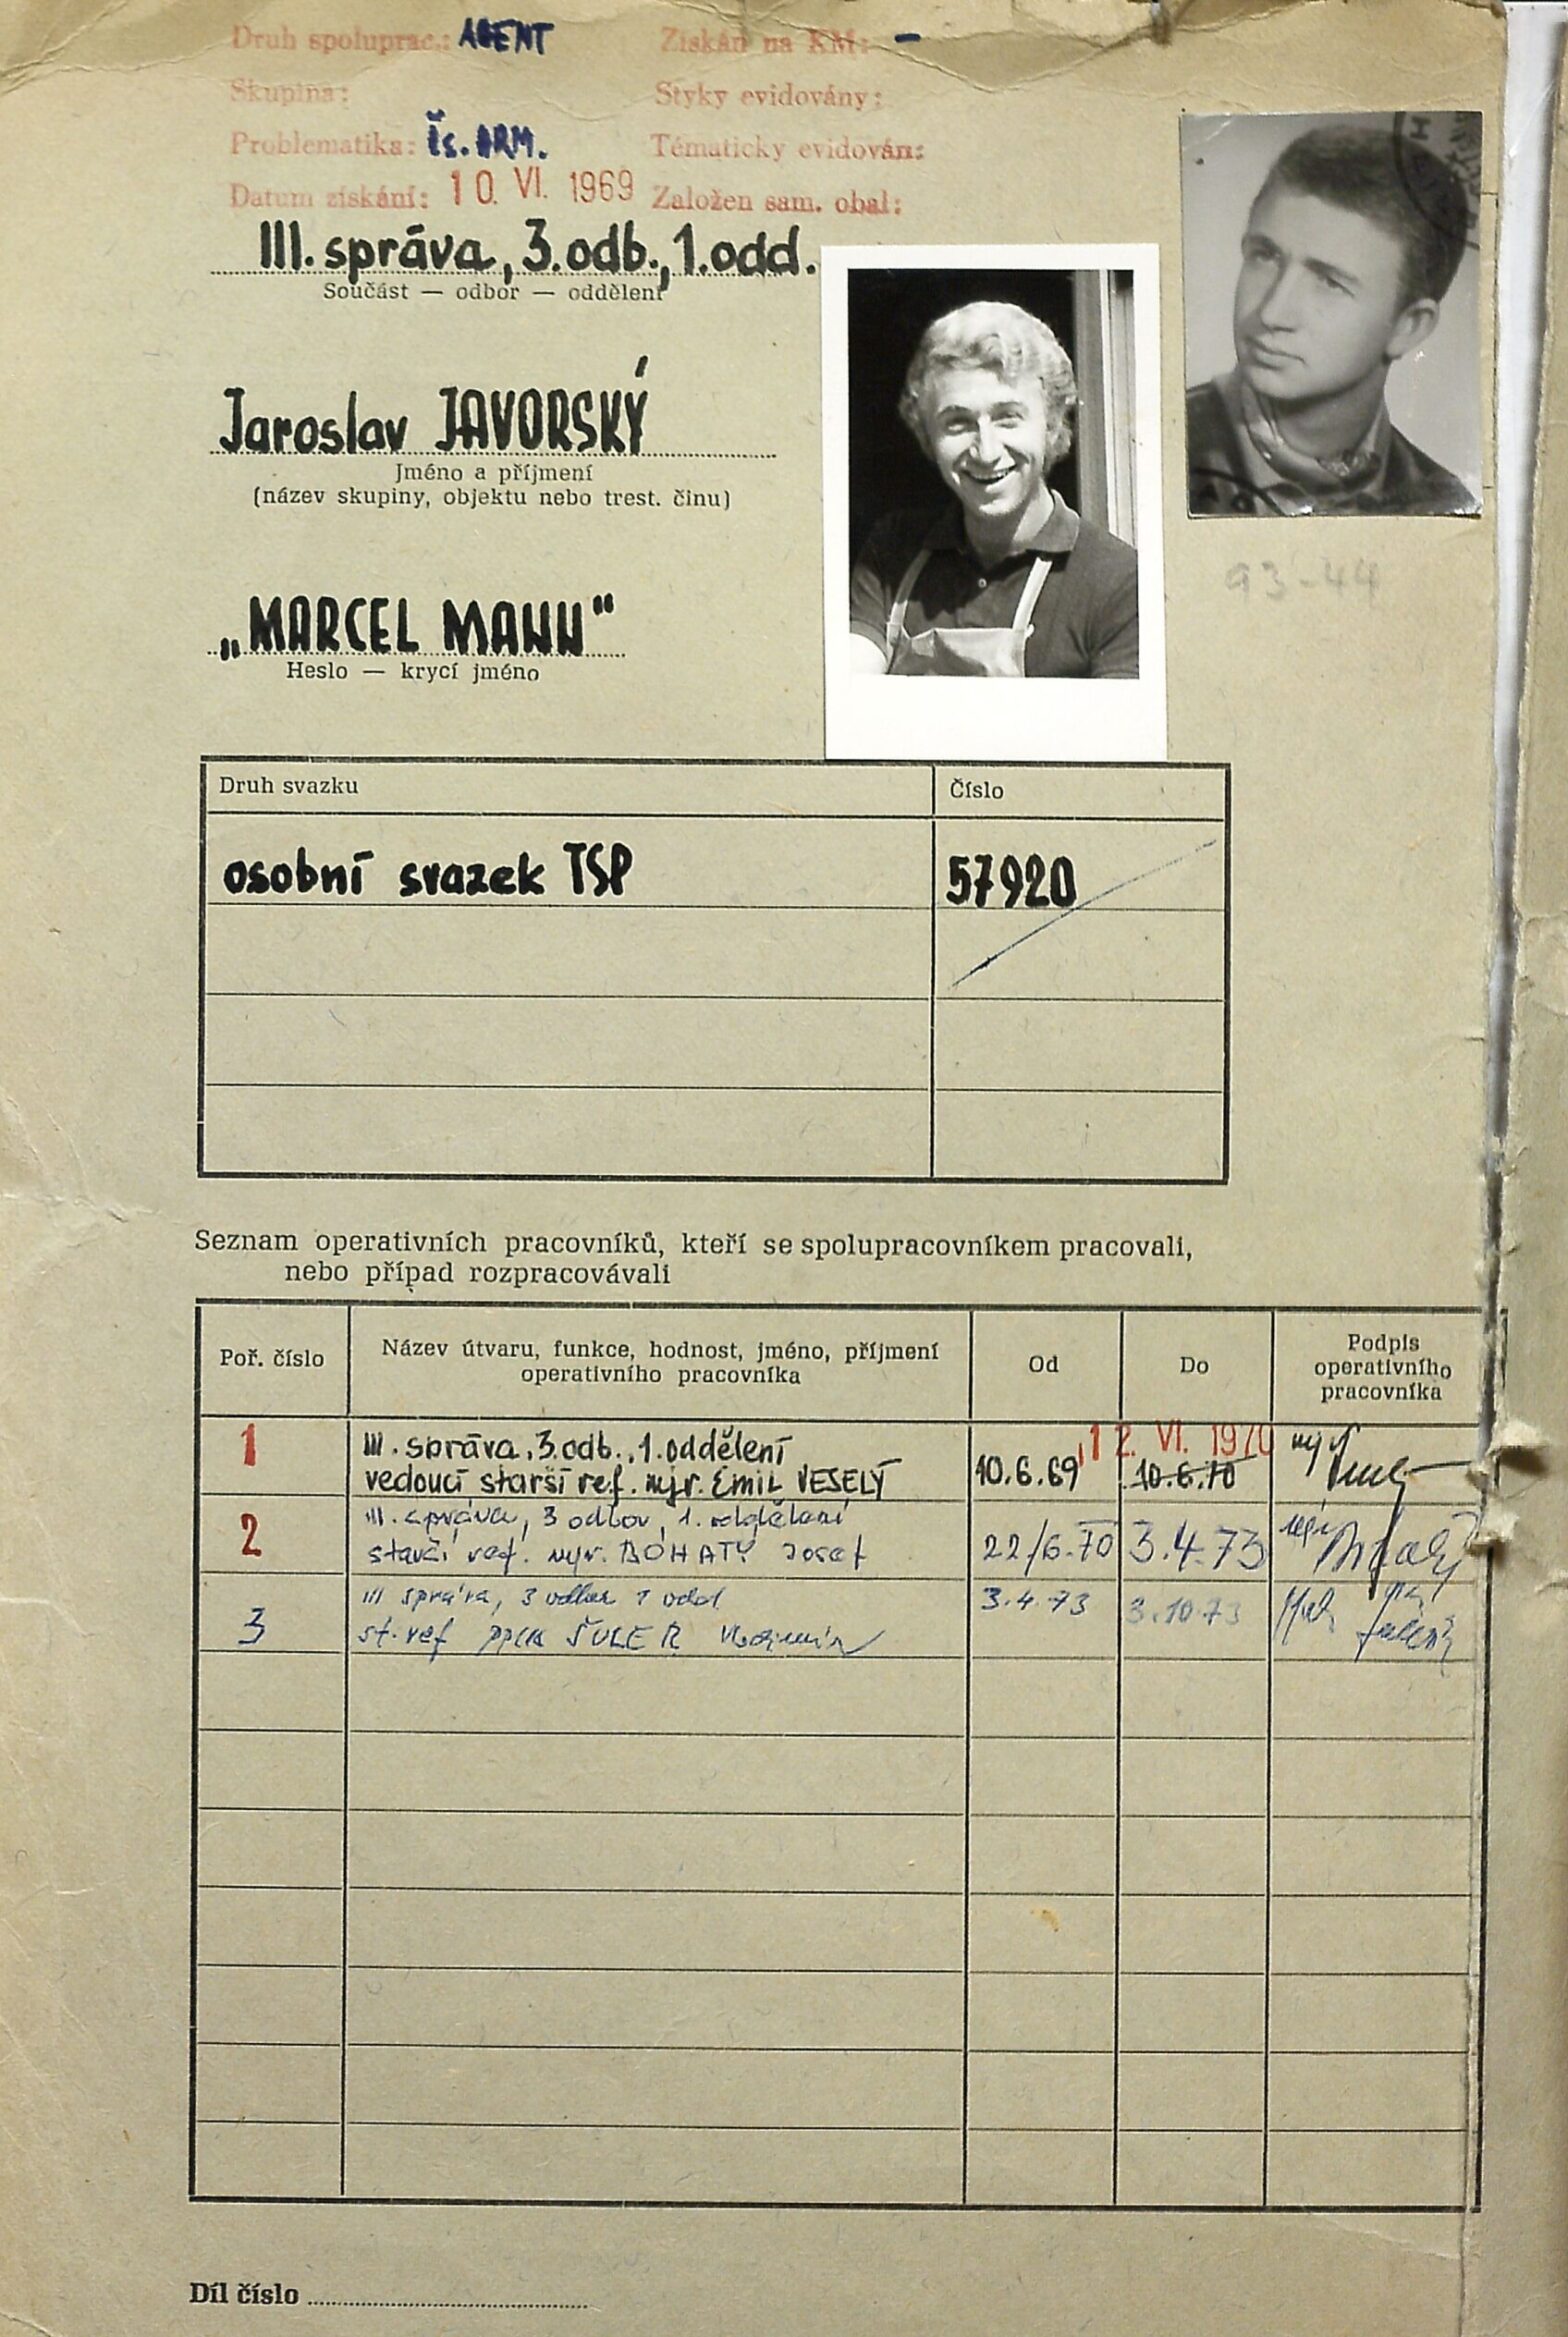 Druh spoluprac.: AGENT Získán na KM: –
Skupina: Styky evidovány:
Problematika: čs. ARM. Tématicky evidován:
Datum získání: 10. VI. 1969 Založen sam. obal:
III. správa, 3. odb., 1. odd.
Součást — odbor — oddělení
Jaroslav JAVORSKÝ
Jméno a příjmení
(název skupiny, objektu nebo trest. činu)
93-44
„MARCEL MANN“
Heslo — krycí jméno
Druh svazku Číslo
osobní svazek TSP 57920
Seznam operativních pracovníků, kteří se spolupracovníkem pracovali,
nebo případ rozpracovávali
Poř. číslo Název útvaru, funkce, hodnost, jméno, příjmení operativního pracovníka Od Do Podpis operativního pracovníka
1 III. správa, 3. odb., 1. oddělení 12. VI. 1970
vedoucí starší ref. mjr. Emil VESELÝ 10.6.69 10.6.70
2 III. správa, 3 odbor, 1. oddělení
starší ref. mjr. BOHATÝ Josef 22/6.70 3.4.73
III správa, 3 odbor 1 odd 3.4.73 3.10.73
3 st. ref pplk ŠULER Vladimír
Díl číslo